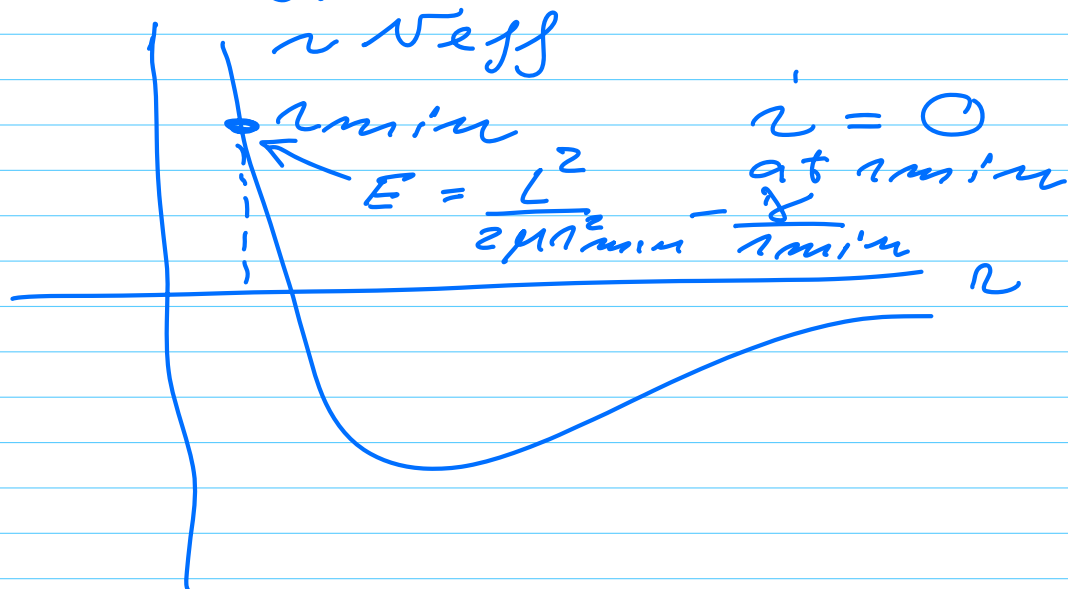 ~ Veff
rmin
ṙ = 0
at rmin
E = L² / 2μr²min - γ / rmin
r